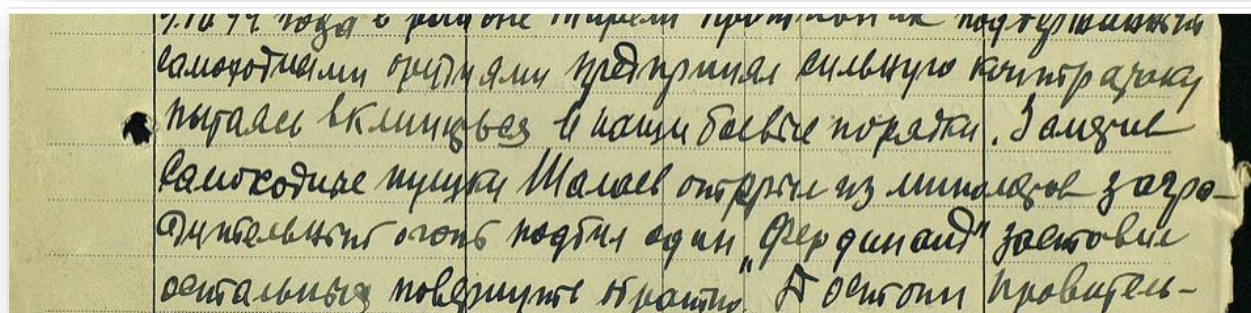 года в районе противник
самоходными орудиями предпринял сильную контратаку
пытаясь вклиниться в наши боевые порядки. Заметив
самоходные пушки Шалаев открыл из минометов загра-
дительный огонь подбил один „Фердинанд" заставил
остальных повернуть обратно. Достоин правитель-